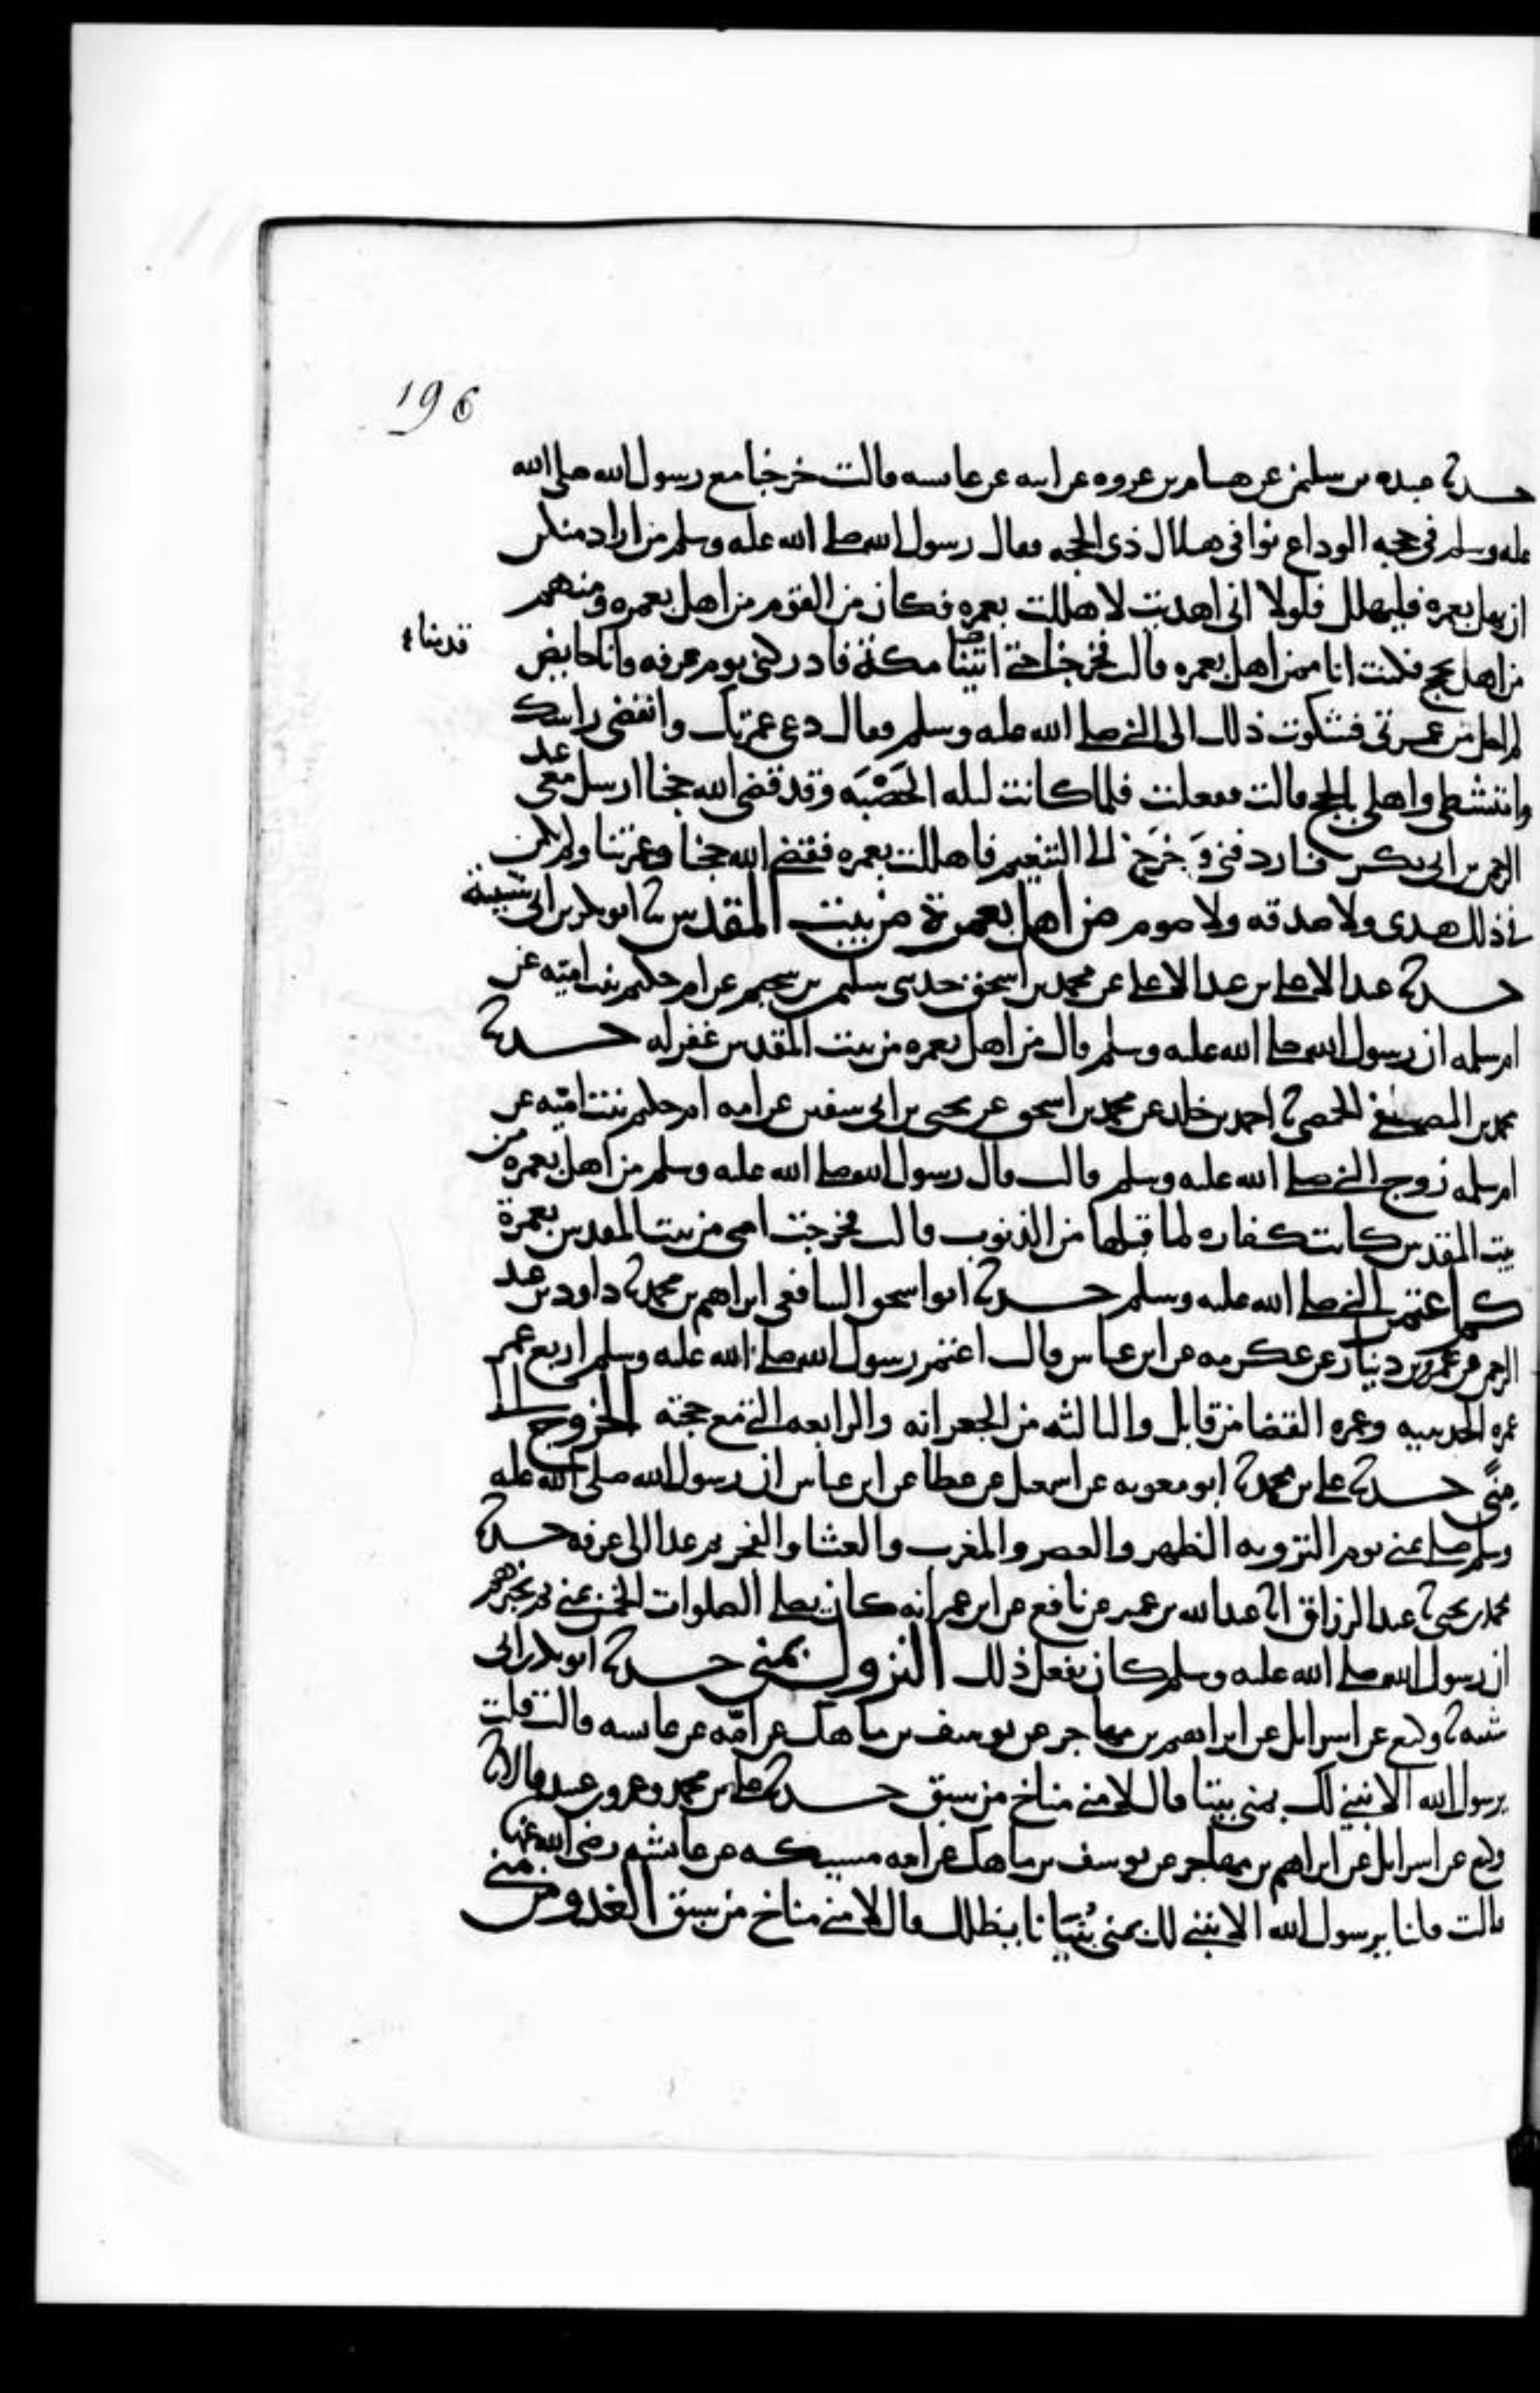 196
حدثنا عبده بن سليمن عن هسام بن عروه عن ابيه عن عايسه قالت خرجنا مع رسول الله صلى الله
عليه وسلم في حجه الوداع نوافي هلال ذي الحجه فقال رسول الله صلى الله عليه وسلم من اراد منكم
ان يهل بعمره فليهلل فلولا اني اهديت لاهللت بعمره فكان من القوم من اهل بعمره ومنهم
من اهل بحج فكنت انا ممن اهل بعمره قالت فخرجنا حتى اتينا مكة فادركني يوم عرفه وانا حايض
قدمنا
لم احل من عمرتي فشكوت ذلك الى النبي صلى الله عليه وسلم فقال دعي عمرتك وانقضي راسك
وامتشطي واهلي بالحج قالت ففعلت فلما كانت ليله الحَصْبَه وقد قضى الله حجنا ارسل معي عبد
الرحمن بن ابي بكر فاردفني وَخَرَجَ الى التنعيم فاهللت بعمره فقضى الله حجنا وعمرتنا ولم يكن
في ذلك هدي ولا صدقه ولا صوم من اهل بعمرة من بيت المقدس ثنا ابو بكر بن ابي شيبة
حدثنا عبد الاعلى بن عبد الاعلى عن محمد بن اسحق حدثني سليم بن سحيم عن ام حكيم بنت اميه عن
ام سلمه ان رسول الله صلى الله عليه وسلم قال من اهل بعمره من بيت المقدس غفر له حدثنا
محمد بن المصفى الحمصي ثنا احمد بن خالد عن محمد بن اسحق عن يحيى بن ابي سفين عن امه ام حكيم بنت اميه عن
ام سلمه زوج النبي صلى الله عليه وسلم قالت قال رسول الله صلى الله عليه وسلم من اهل بعمره من
بيت المقدس كانت كفاره لما قبلها من الذنوب قالت فخرجت امي من بيت المقدس بعمرة
كم اعتمر النبي صلى الله عليه وسلم حدثنا ابو اسحق السافعي ابراهيم بن محمد ثنا داود بن عبد
الرحمن عن عمرو بن دينار عن عكرمه عن ابن عباس قال اعتمر رسول الله صلى الله عليه وسلم اربع عمر
عمره الحديبيه وعمره القضا من قابل والثالثه من الجعرانه والرابعه التي مع حجته الخروج الى
مِنًى حدثنا علي بن محمد ثنا ابو معويه عن اسمعيل عن عطا عن ابن عباس ان رسول الله صلى الله عليه
وسلم صلى بمنى يوم الترويه الظهر والعصر والمغرب والعشا والفجر ثم غدا الى عرفه حدثنا
محمد بن يحيى ثنا عبد الرزاق انا عبد الله بن عمر عن نافع عن ابن عمر انه كان يصلي الصلوات الخمس بمنى ثم يخبرهم
ان رسول الله صلى الله عليه وسلم كان يفعل ذلك النزول بمنى حدثنا ابو بكر بن ابي
شيبه ثنا وكيع عن اسرايل عن ابراهيم بن مهاجر عن يوسف بن ماهك عن امّه عن عايسه قالت قلت
يرسول الله الا نبني لك بمنى بيتا قال لا منى مناخ من سبق حدثنا علي بن محمد وعمرو بن عبد الله قالا ثنا
وكيع عن اسرايل عن ابراهيم بن مهاجر عن يوسف بن ماهك عن امه مسيكه عن عائشه رضي الله عنها
قالت قلنا يرسول الله الا نبني لك بمنى بُنيَانا يظلك قال لا منى مناخ من سبق الغدو من منى